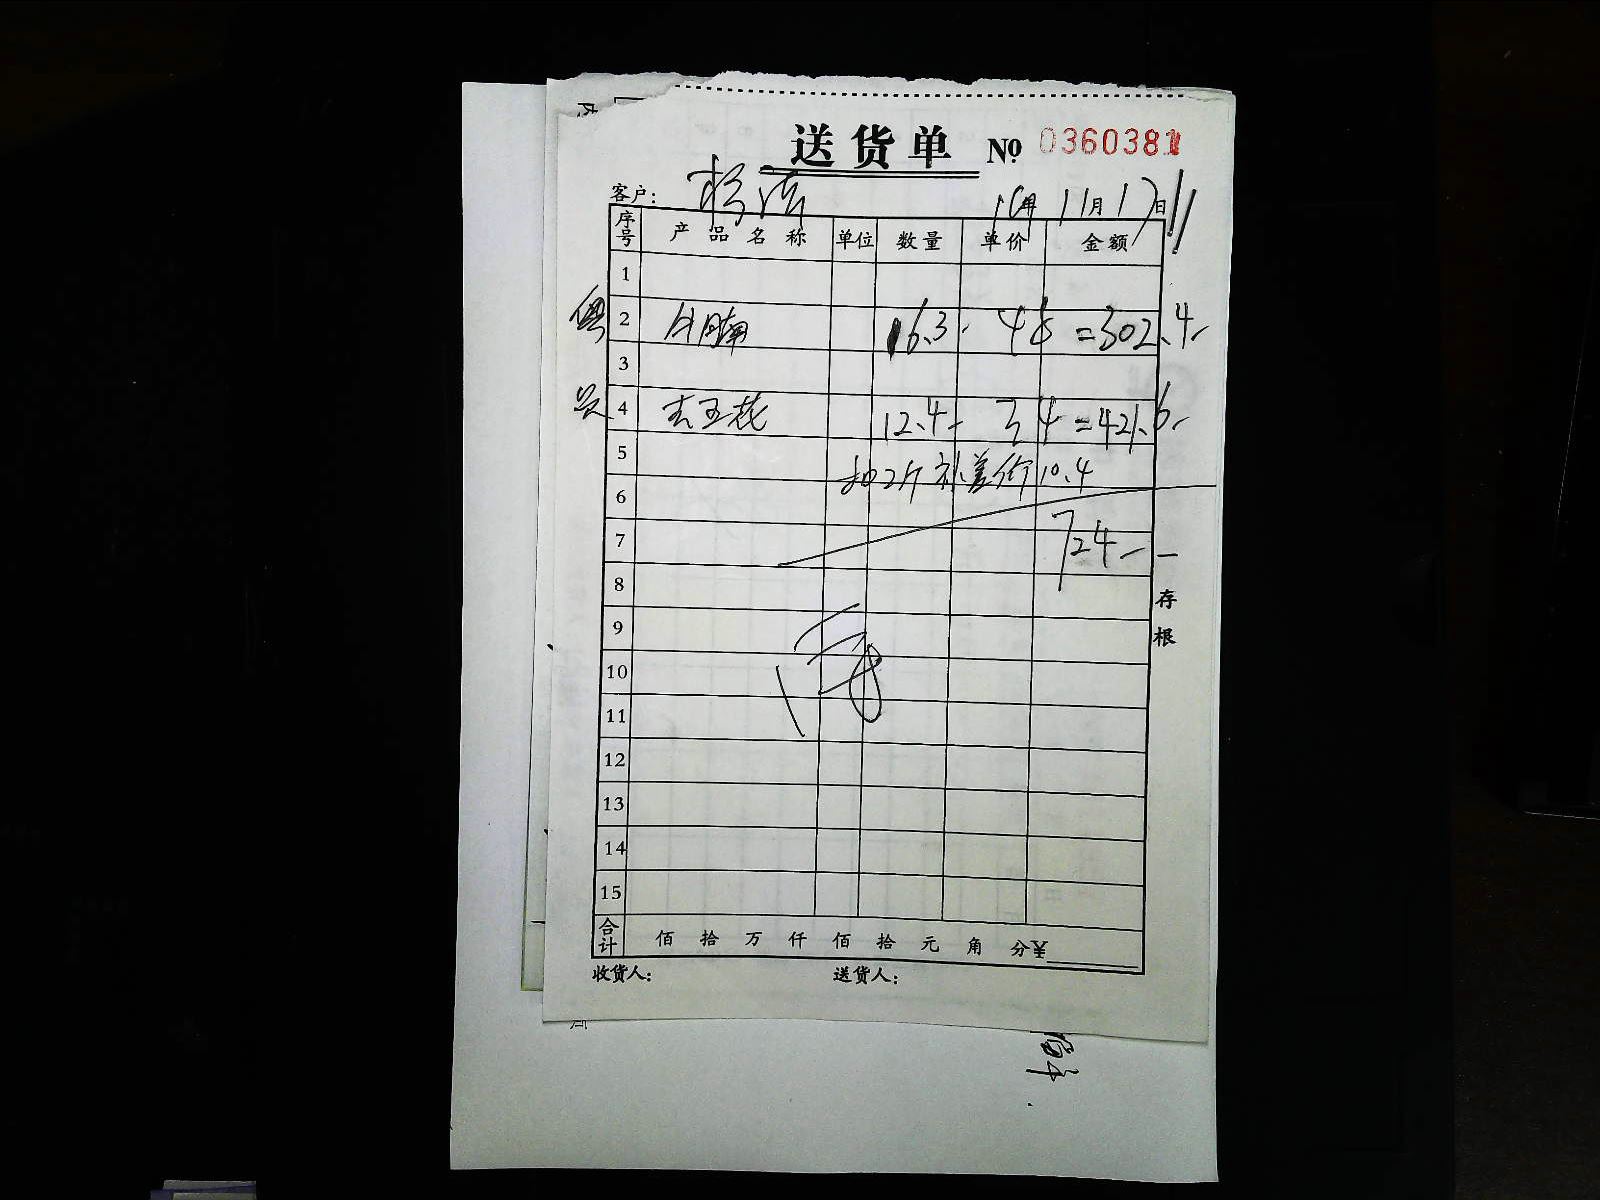 送货单 № 0360381
客户：
16年 11月17日
序号 产品名称 单位 数量 单价 金额
1
2 牛腩 16.3 48 =302.4
3
4 去五花 12.4 34 =421.6
5 扣2斤补差价10.4
6
7 724
8
9
10
11
12
13
14
15
合计 佰 拾 万 仟 佰 拾 元 角 分￥
收货人： 送货人：
存根